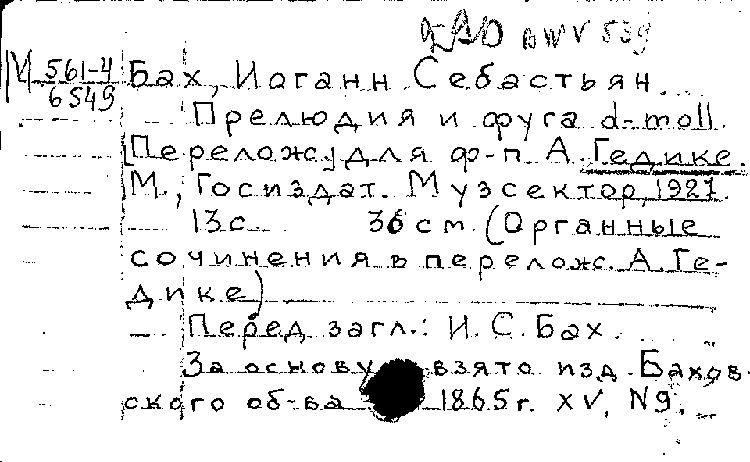 BWV 539
М 561-4
6549
Бах, Иоганн Себастьян.
Прелюдия и фуга d-moll.
Перелож. для ф-п. А. Гедике.
М., Госиздат. Музсектор, 1927.
13 с. 36 см. (Органные
сочинения в перелож. А. Ге-
дике)
Перед загл.: И. С. Бах.
За основу взято изд. Бахов-
ского об-ва 1865 г. XV, N9.